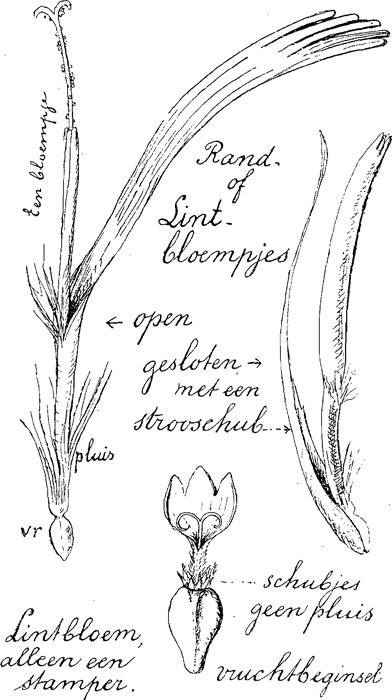 Een bloempje
Rand-
of
Lint-
bloempjes
← open
gesloten →
met een
strooschub
pluis
vr
schubjes
geen pluis
Lintbloem,
alleen een
stamper.
vruchtbeginsel